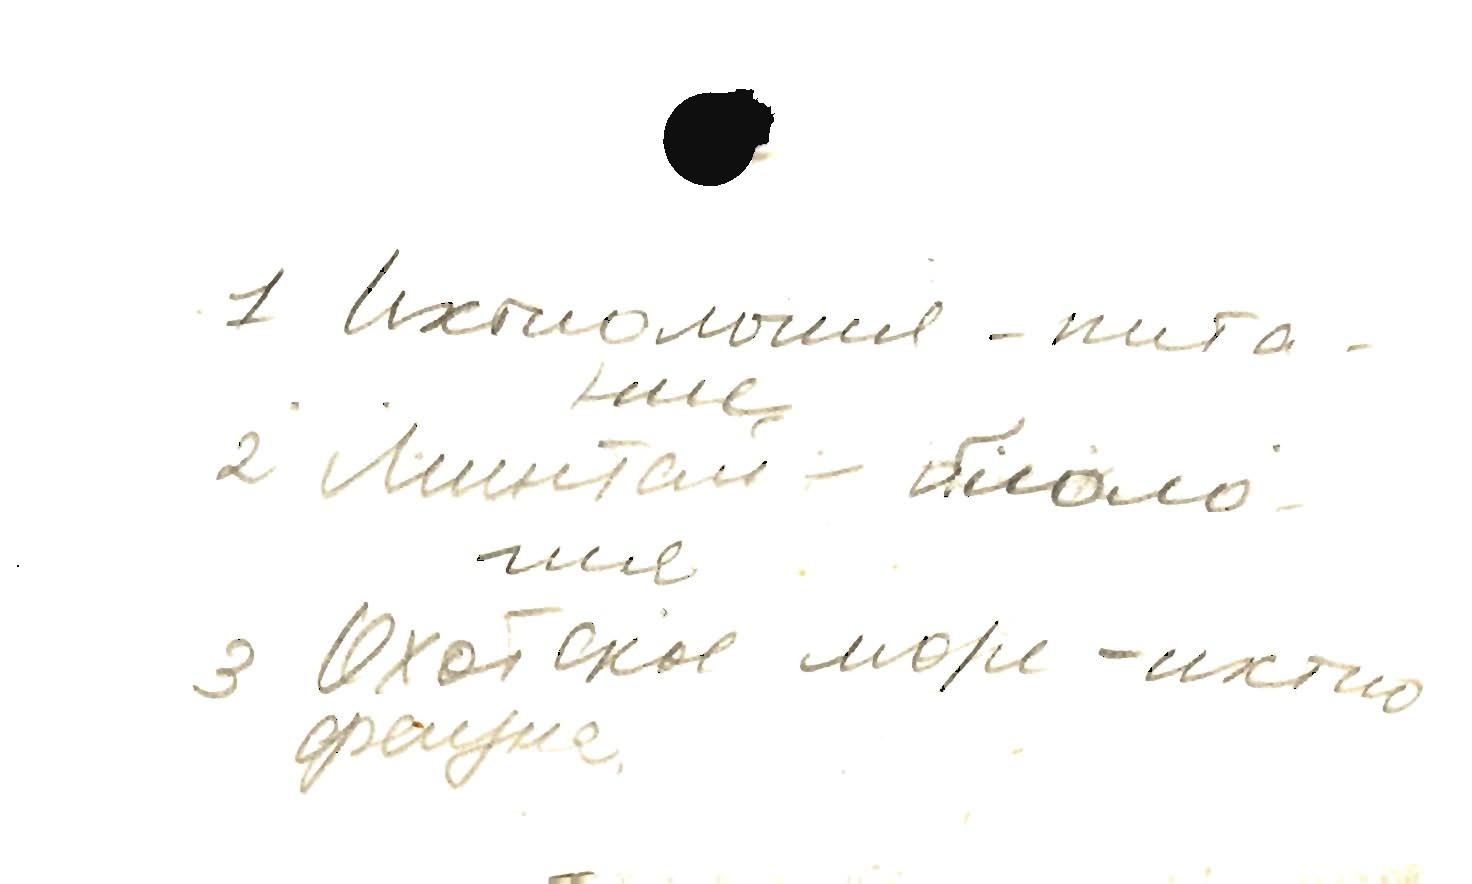 1 Ихтиология - пита-
ние
2 Минтай - биоло-
гия
3 Охотское море - ихтио
фауна.